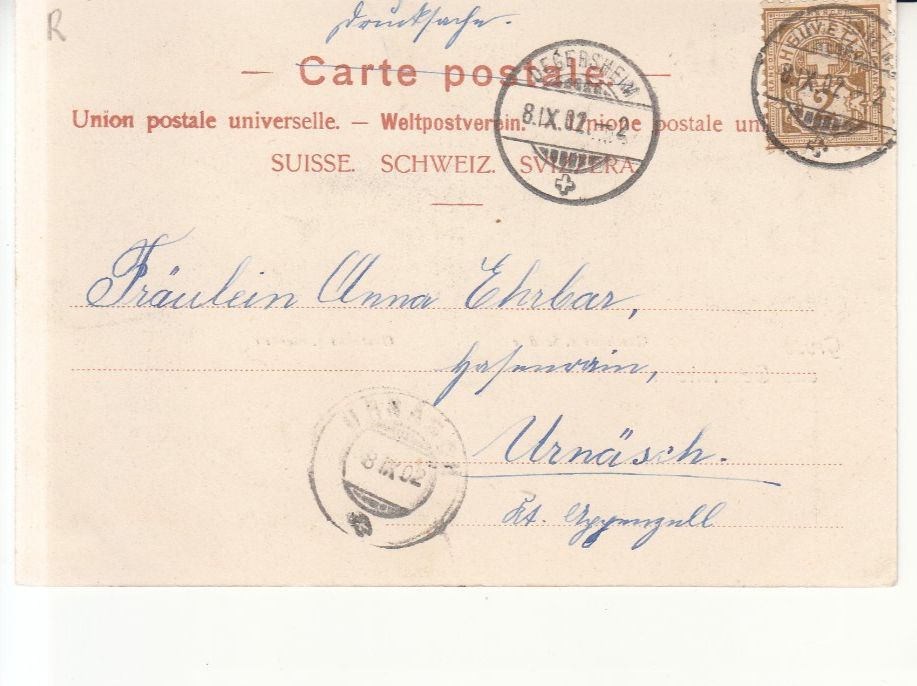 R
Drucksache.
HELVETIA
2
8.IX.02.-2
Carte postale.
DEGERSHEIM
8.IX.02.-2
Union postale universelle. — Weltpostverein. — Unione postale un
SUISSE. SCHWEIZ. SVIZZERA.
Fräulein Anna Ehrbar,
Hasenrain,
URNÄSCH
8 IX 02
Urnäsch.
Kt. Appenzell